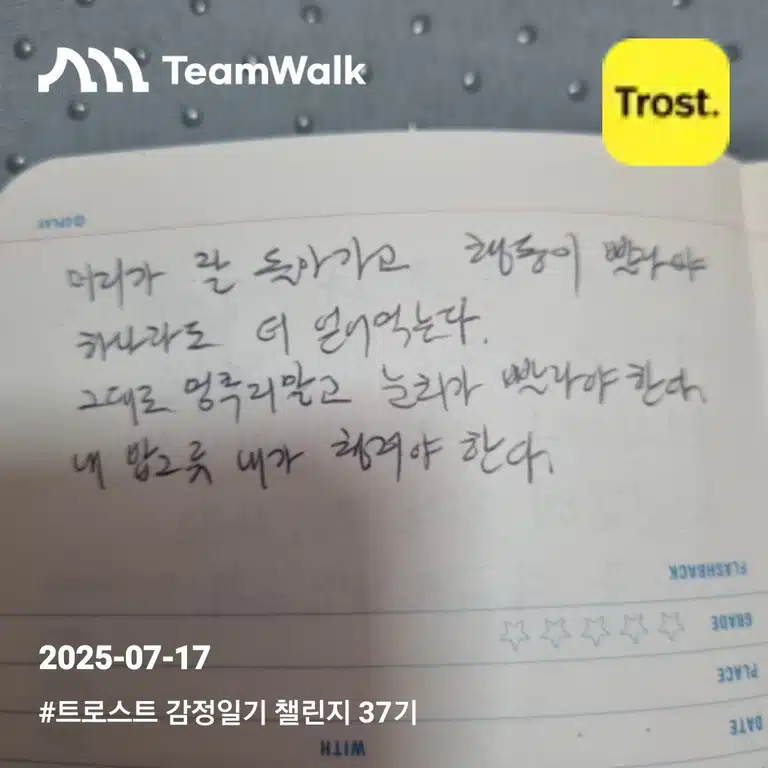 TeamWalk
Trost.
DPLAY
머리가 잘 돌아가고 행동이 빨라야
하나라도 더 얻어먹는다.
그대로 멍후리말고 눈치가 빨라야 한다.
내 밥그릇 내가 챙겨야 한다.
FLASHBACK
GRADE
PLACE
DATE
WITH
2025-07-17
#트로스트 감정일기 챌린지 37기